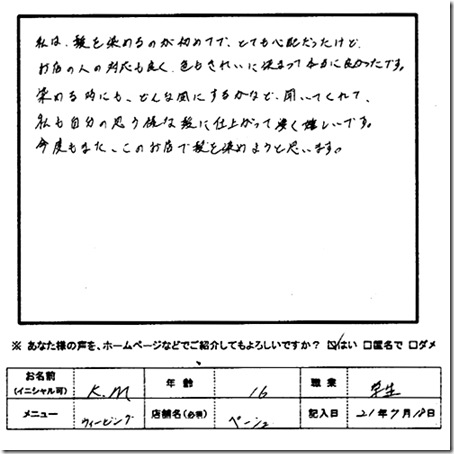 私は、髪を染めるのが初めてで、とても心配だったけど、
お店の人の対応も良く、色もきれいに染まって本当に良かったです。
染める時にも、どんな風にするかなど、聞いてくれて、
私も自分の思う様な髪に仕上がって凄く嬉しいです。
今度もまた、このお店で髪を染めようと思います。
※ あなた様の声を、ホームページなどでご紹介してもよろしいですか? ☑はい □匿名で □ダメ
お名前(イニシャル可) K.M 年齢 16 職業 学生
メニュー ウィービング 店舗名(必須) ページュ 記入日 21年7月18日